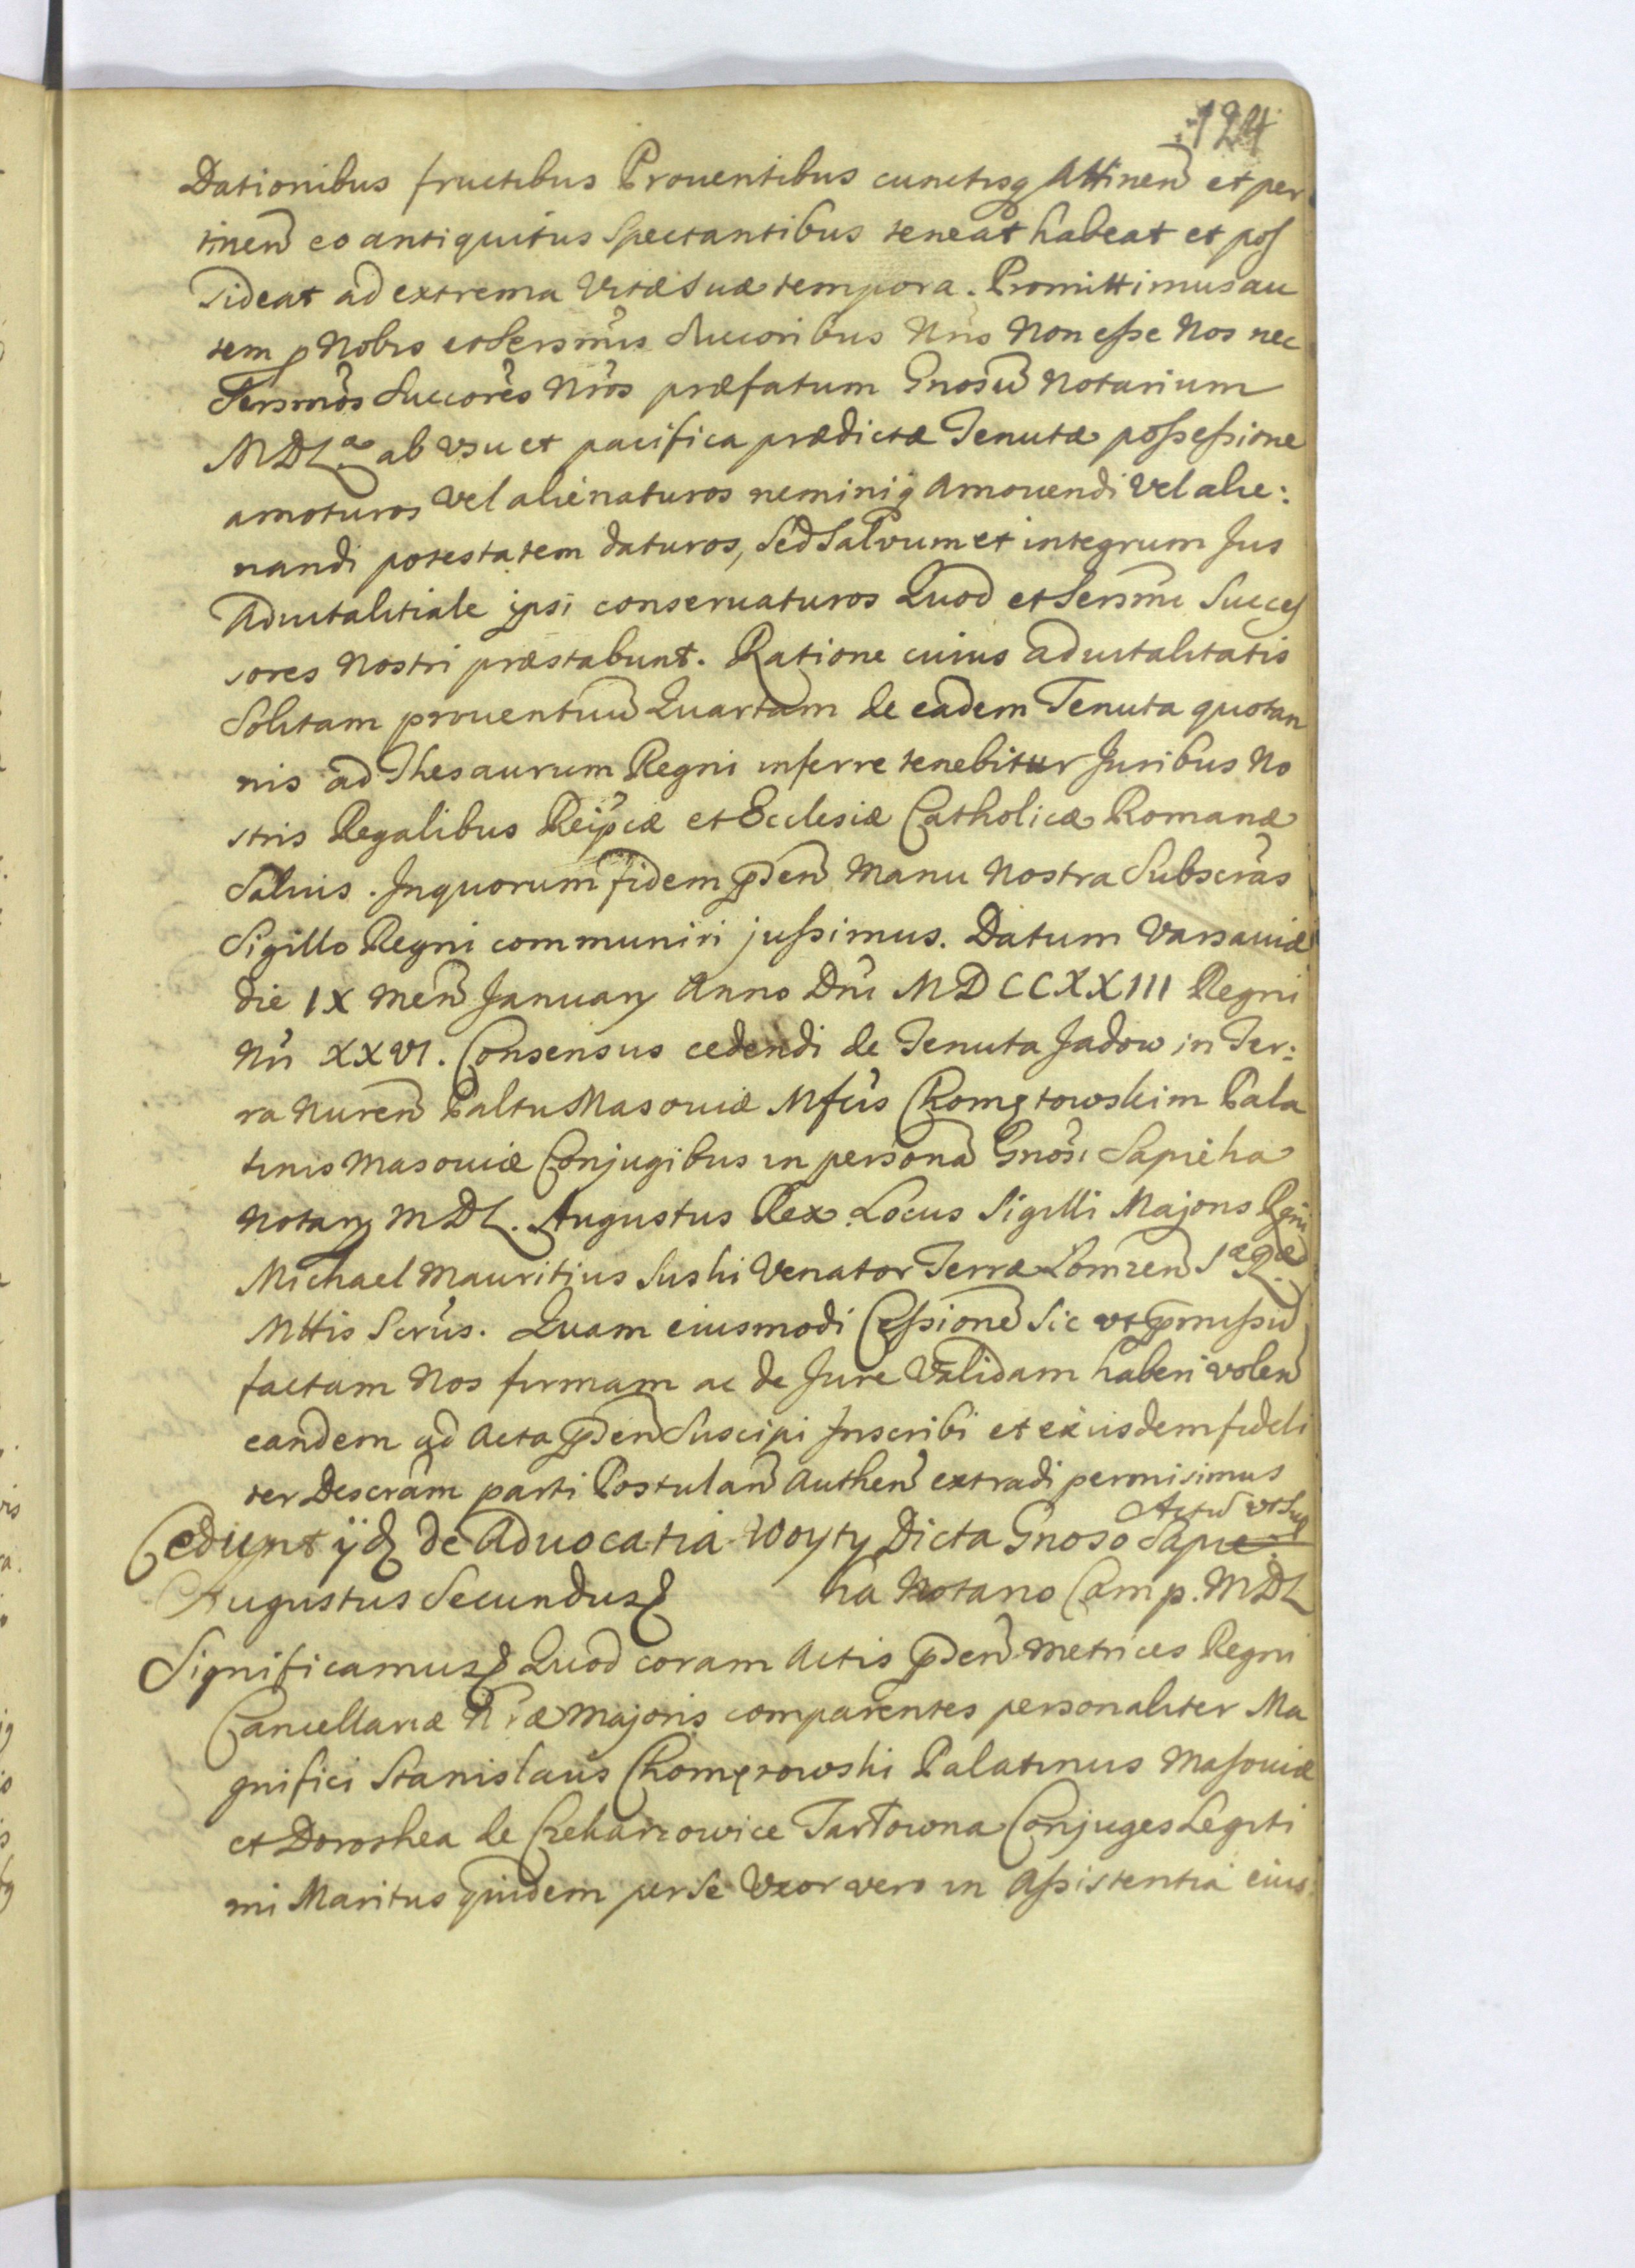 124
Dationibus fructibus Prouentibus cunctisq Attinen et per
tinen eo antiquitus Spectantibus teneat habeat et pos
sideat ad extrema Vitæ Suæ tempora. Promittimus au
tem p Nobis et Sersmis Succoribus Nris Non esse Nos nec
Sersmos Succores Nros præfatum Gnosu Notarium
MDL.æ ab Vsu et pacifica prædictæ Tenutæ possessione
amoturos Vel alienaturos neminiq Amouendi Vel alie:
nandi potestatem daturos, Sed Salvum et integrum Jus
Aduitalitiale ipsi conseruaturos Quod et Sersmi Succes
sores Nostri præstabunt. Ratione cuius aduitalitatis
Solitam prouentuu Quartam de eadem Tenuta quotan
nis ad Thesaurum Regni inferre tenebitur Juribus No
stris Regalibus Reipcæ et Ecclesiæ Catholicæ Romanæ
Saluis. In quorum fidem pñden Manu Nostra Subscras
Sigillo Regni communiri jussimus. Datum Varsauiæ
die IX Men January Anno Dni MDCCXXIII Regni
Nri XXVI. Consensus cedendi de Tenuta Jadow in Ter:
ra Nuren Paltu Masouiæ Mfcis Chomętowskim Pala
tinis Masouiæ Conjugibus in persona Gnosi Sapieha
Notary MDL. Augustus Rex. Locus Sigilli Majoris Rgni
Michael Mauritius Suski Venator Terræ Lomzen Sæ Ræ
Mttis Scrius. Quam eiusmodi Cessione Sic vt pmissu
factam Nos firmam ac de Jure Validam haberi volen
eandem ad Acta pñden Suscipi Inscribi et exiisdem fideli
ter Descram parti Postulan Authen extradi permisimus
Actu vt Sup
Cedunt ijd de Aduocatia Woyty Dicta Gnoso Sapie
Augustus Secundus ha Notario Camp. MDL
Significamus Quod coram Actis pñden Metrices Regni
Cancellariæ Nræ Majoris comparentes personaliter Ma
gnifici Stanislaus Chomętowski Palatinus Masouiæ
et Dorothea de Czekarzowice Tarłowna Conjuges Legiti
mi Maritus quidem per Se Vxor vero in Assistentia eius